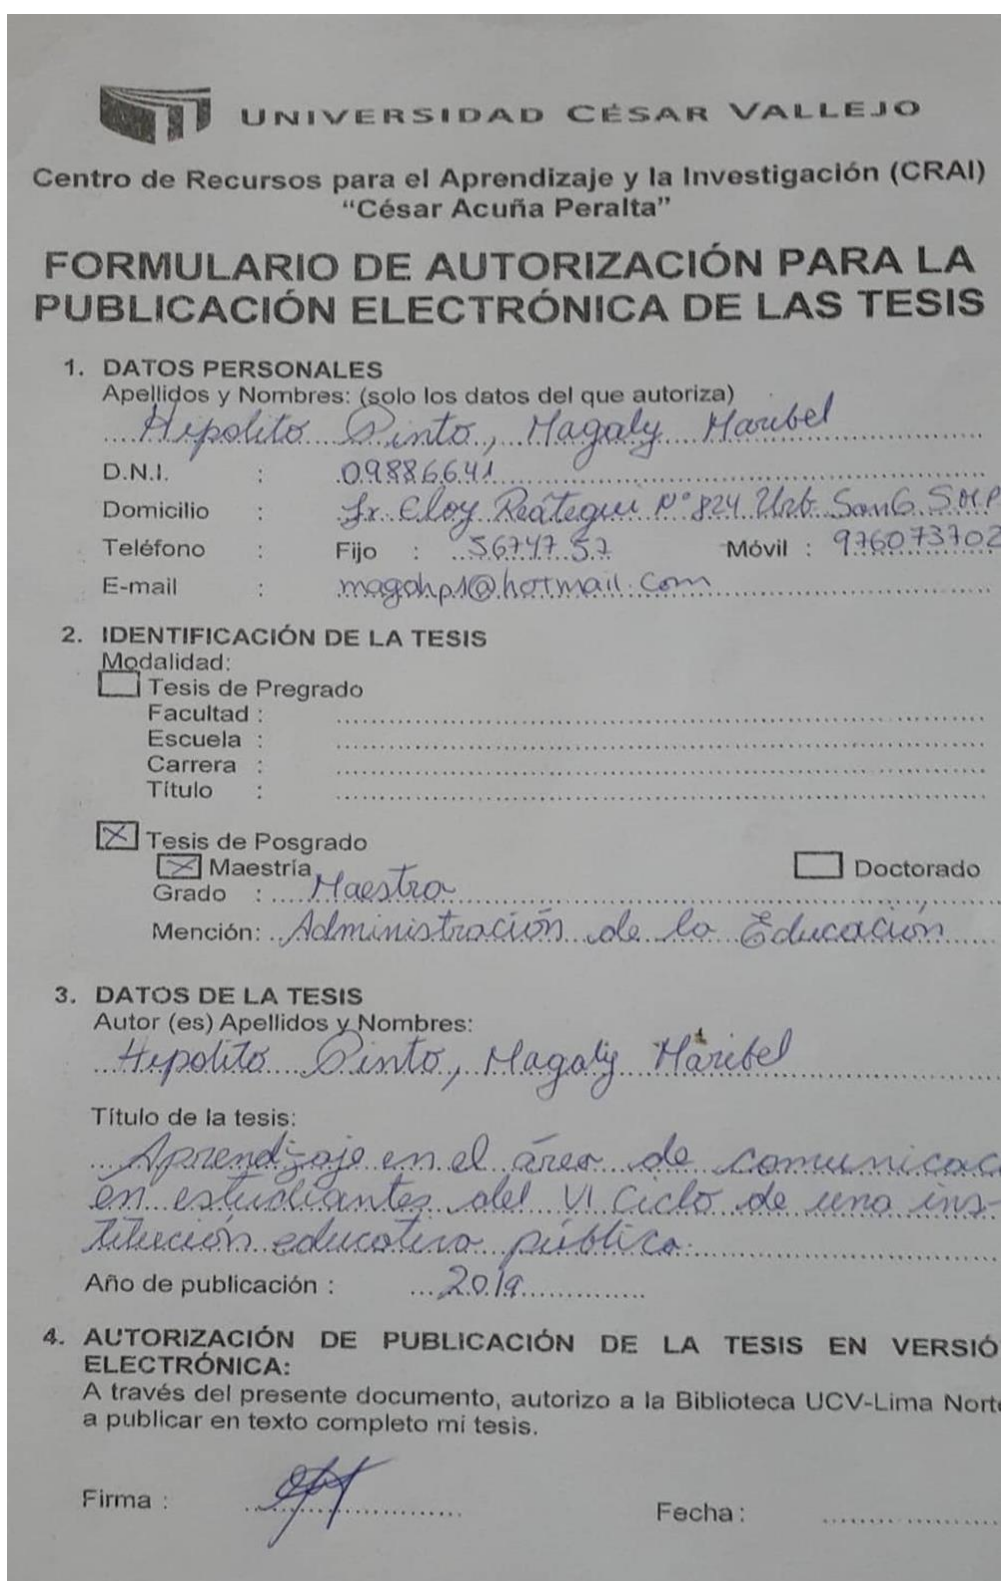 UNIVERSIDAD CÉSAR VALLEJO
Centro de Recursos para el Aprendizaje y la Investigación (CRAI)
“César Acuña Peralta”
FORMULARIO DE AUTORIZACIÓN PARA LA
PUBLICACIÓN ELECTRÓNICA DE LAS TESIS
1. DATOS PERSONALES
Apellidos y Nombres: (solo los datos del que autoriza)
Hipolito Pinto, Magaly Maribel
D.N.I. : 09886641
Domicilio : Jr. Eloy Reátegui N° 824 Urb. San G. SMP
Teléfono : Fijo : 5674757 Móvil : 976073702
E-mail : magohp1@hotmail.com
2. IDENTIFICACIÓN DE LA TESIS
Modalidad:
Tesis de Pregrado
Facultad :
Escuela :
Carrera :
Título :
Tesis de Posgrado
Maestría Doctorado
Grado : Maestra
Mención: Administración de la Educación
3. DATOS DE LA TESIS
Autor (es) Apellidos y Nombres:
Hipolito Pinto, Magaly Maribel
Título de la tesis:
Aprendizaje en el área de comunicac
en estudiantes del VI Ciclo de una ins-
titución educativa pública.
Año de publicación : 2019
4. AUTORIZACIÓN DE PUBLICACIÓN DE LA TESIS EN VERSIÓ
ELECTRÓNICA:
A través del presente documento, autorizo a la Biblioteca UCV-Lima Norte
a publicar en texto completo mi tesis.
Firma : Fecha :